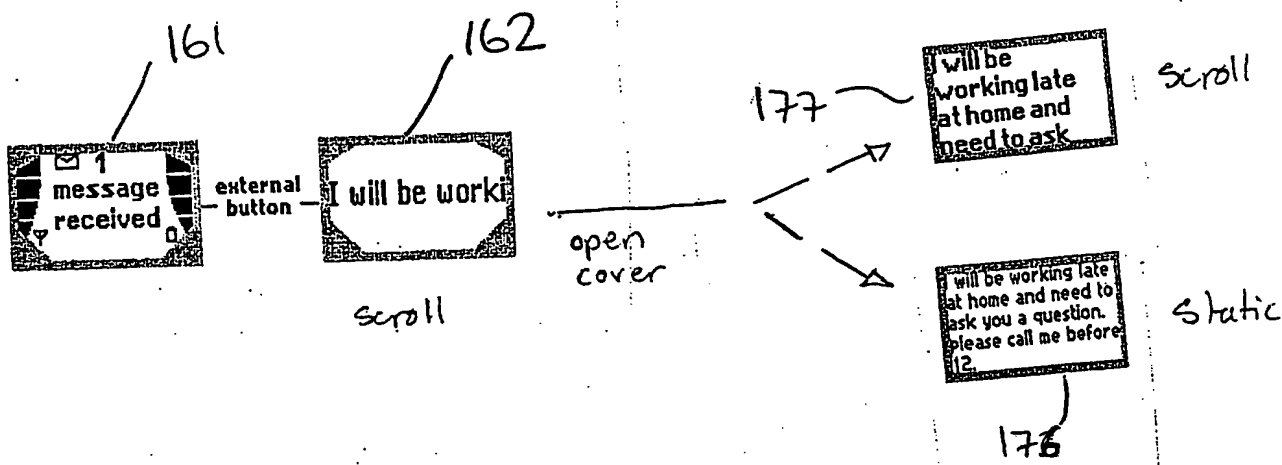 161
1
message
received
external
button
162
I will be worki
scroll
open
cover
177
I will be
working late
at home and
need to ask
scroll
I will be working late
at home and need to
ask you a question.
please call me before
12.
static